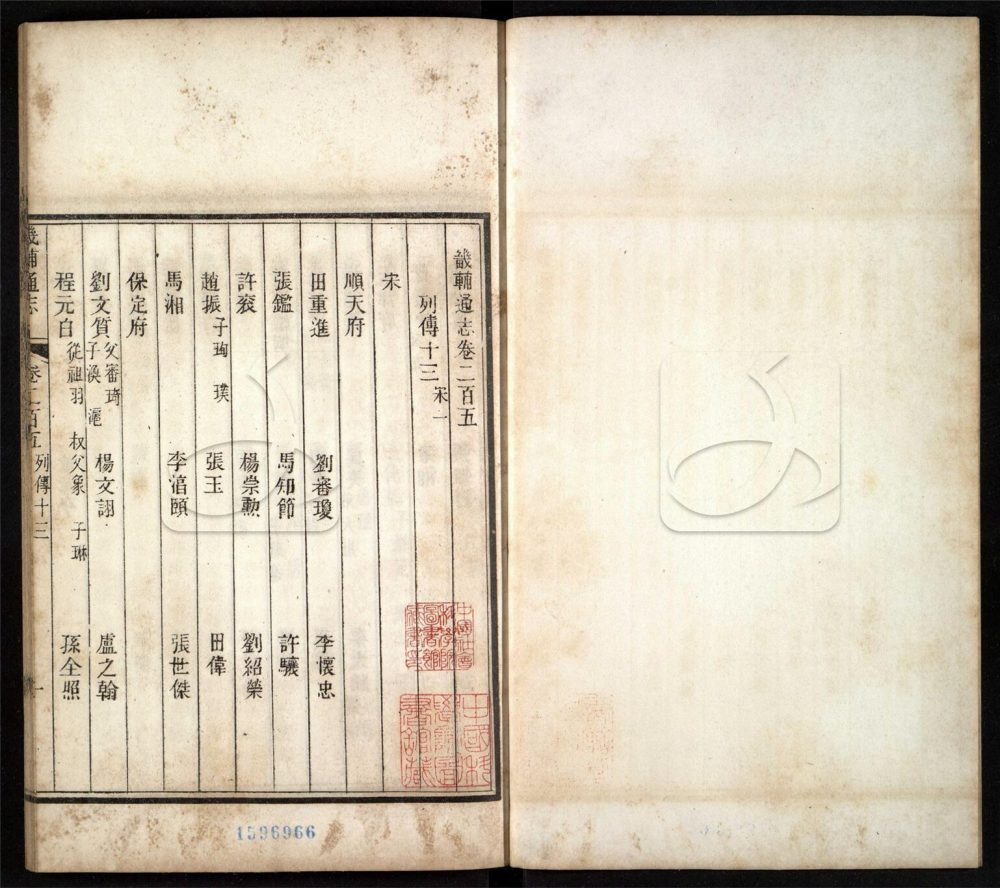 畿輔通志卷二百五
列傳十三 宋一
宋
順天府
田重進 劉審瓊 李懷忠
張鑑 馬知節 許驤
許兖 楊崇勲 劉紹榮
趙振 子珣 璞 張玉 田偉
馬湘 李涫頤 張世傑
保定府
劉文質 父審琦 子渙 滬 楊文詡 盧之翰
程元白 從祖羽 叔父象 子琳 孫全照
畿輔通志 卷二百五 列傳十三 一
1596966